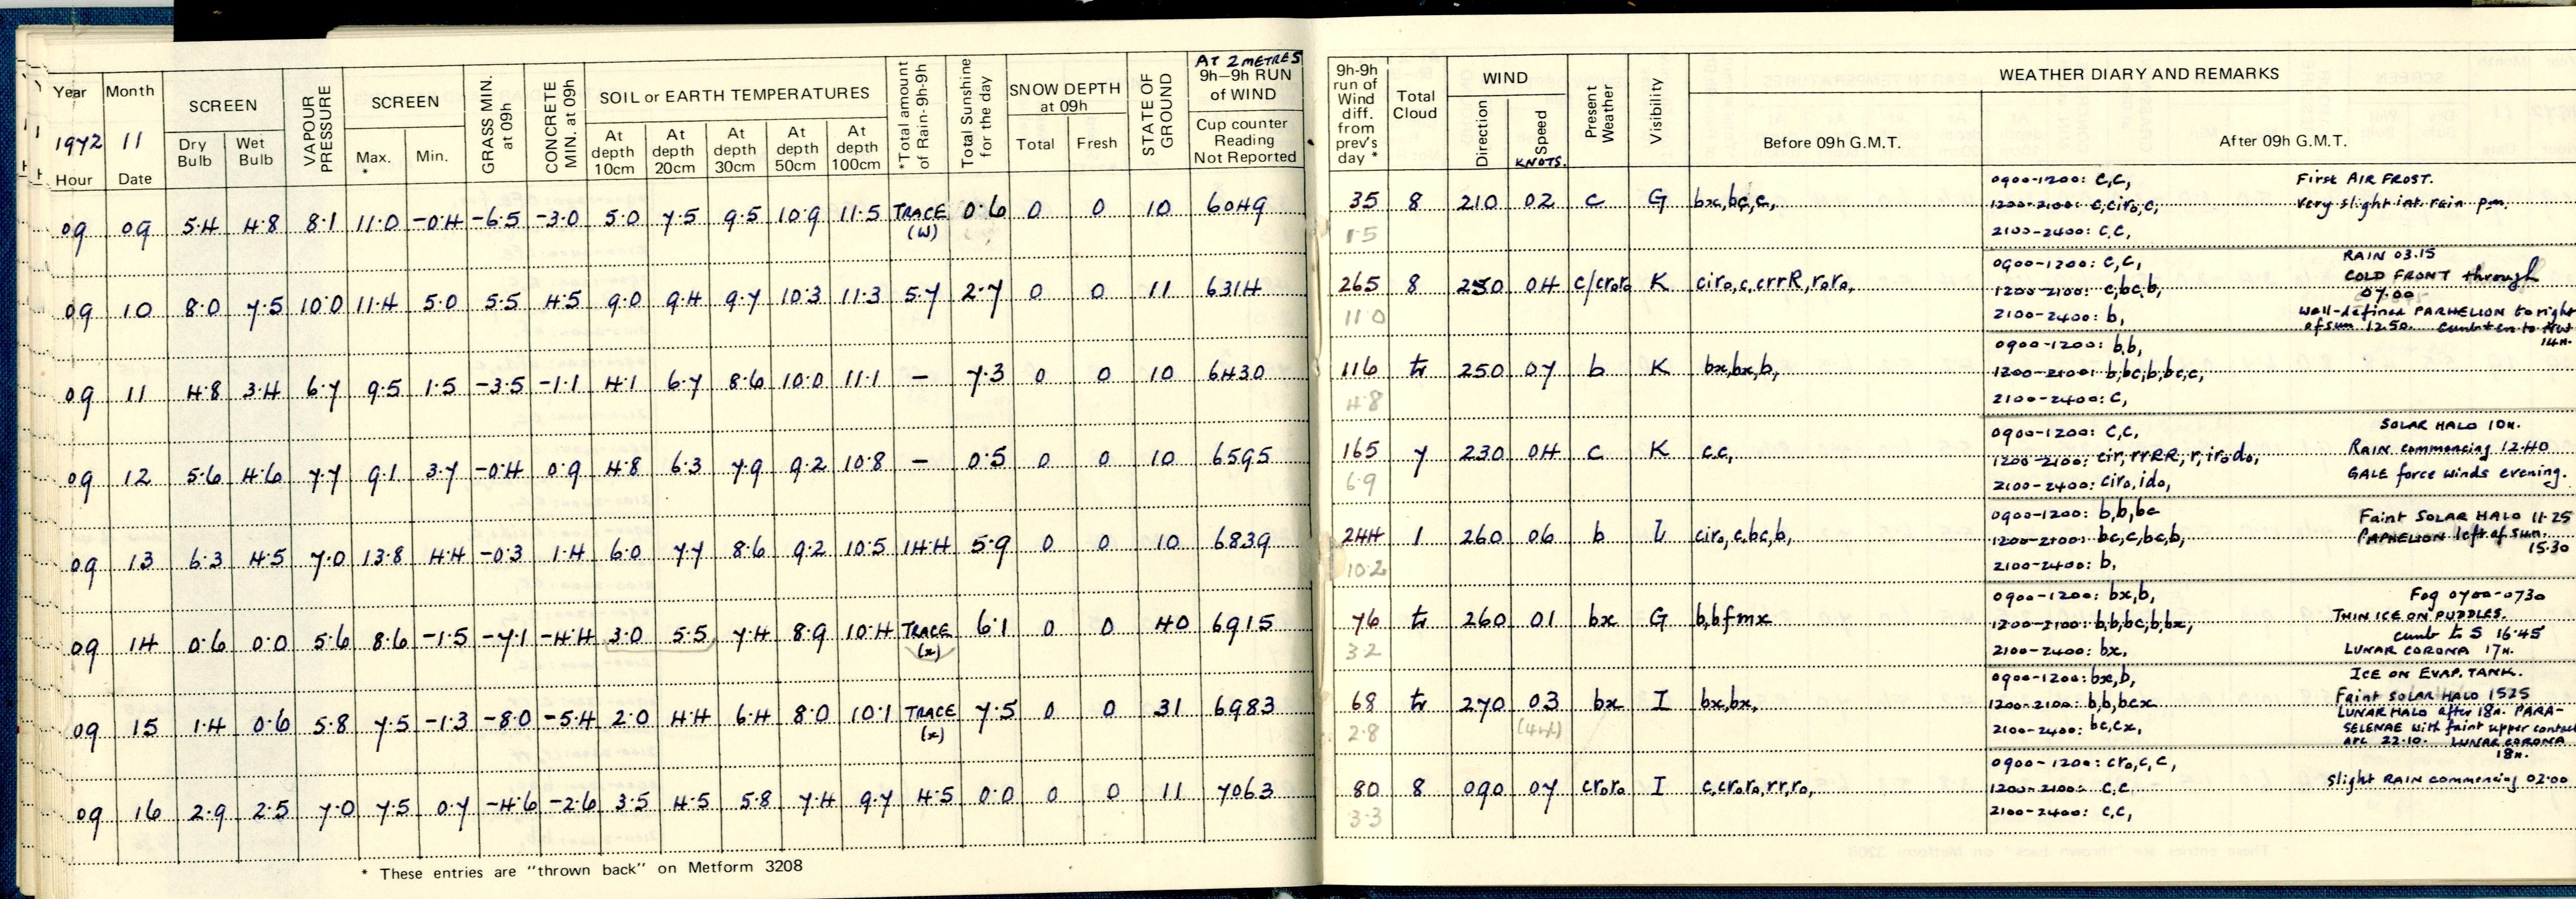 AT 2 METRES
Year Month SCREEN VAPOUR PRESSURE SCREEN GRASS MIN. at 09h CONCRETE MIN. at 09h SOIL or EARTH TEMPERATURES *Total amount of Rain-9h-9h Total Sunshine for the day SNOW DEPTH at 09h STATE OF GROUND 9h–9h RUN of WIND
1972 11 Dry Bulb Wet Bulb Max. * Min. At depth 10cm At depth 20cm At depth 30cm At depth 50cm At depth 100cm Total Fresh Cup counter Reading Not Reported
Hour Date
09 09 5.4 4.8 8.1 11.0 -0.4 -6.5 -3.0 5.0 7.5 9.5 10.9 11.5 TRACE (W) 0.6 0 0 10 6049
09 10 8.0 7.5 10.0 11.4 5.0 5.5 4.5 9.0 9.4 9.7 10.3 11.3 5.7 2.7 0 0 11 6314
09 11 4.8 3.4 6.7 9.5 1.5 -3.5 -1.1 4.1 6.7 8.6 10.0 11.1 – 7.3 0 0 10 6430
09 12 5.6 4.6 7.7 9.1 3.7 -0.4 0.9 4.8 6.3 7.9 9.2 10.8 – 0.5 0 0 10 6595
09 13 6.3 4.5 7.0 13.8 4.4 -0.3 1.4 6.0 7.7 8.6 9.2 10.5 14.4 5.9 0 0 10 6839
09 14 0.6 0.0 5.6 8.6 -1.5 -7.1 -4.4 3.0 5.5 7.4 8.9 10.4 TRACE (x) 6.1 0 0 40 6915
09 15 1.4 0.6 5.8 7.5 -1.3 -8.0 -5.4 2.0 4.4 6.4 8.0 10.1 TRACE (x) 7.5 0 0 31 6983
09 16 2.9 2.5 7.0 7.5 0.7 -4.6 -2.6 3.5 4.5 5.8 7.4 9.7 4.5 0.0 0 0 11 7063
* These entries are "thrown back" on Metform 3208
9h-9h run of Wind diff. from prev's day * Total Cloud WIND Present Weather Visibility WEATHER DIARY AND REMARKS
Direction Speed KNOTS. Before 09h G.M.T. After 09h G.M.T.
35 8 210 02 c G bx,bc,c, 0900-1200: c,c, First AIR FROST.
1200-2100: c,ciro,c, Very slight int. rain p.m.
1.5 2100-2400: c,c,
265 8 250 04 c/croro K ciro,c,crrR,roro, 0900-1200: c,c, RAIN 03.15
1200-2100: c,bc,b, COLD FRONT through 07.00
11.0 2100-2400: b, Well-defined PARHELION to right of sun 12.50. cumb ten to NW 14H.
116 tr 250 07 b K bx,bx,b, 0900-1200: b,b,
1200-2100: b,bc,b,bc,c,
4.8 2100-2400: c,
165 7 230 04 c K c,c, 0900-1200: c,c, SOLAR HALO 10H.
1200-2100: cir,rrRR,r,irodo, RAIN commencing 12.40
6.9 2100-2400: ciro,ido, GALE force winds evening.
244 1 260 06 b L ciro,c,bc,b, 0900-1200: b,b,bc Faint SOLAR HALO 11.25
1200-2100: bc,c,bc,b, PARHELION left of sun. 15.30
10.2 2100-2400: b,
76 tr 260 01 bx G b,bfmx 0900-1200: bx,b, Fog 0700-0730
1200-2100: b,b,bc,b,bx, THIN ICE ON PUDDLES.
cumb to S 16.45
3.2 2100-2400: bx, LUNAR CORONA 17H.
68 tr 270 03 bx I bx,bx, 0900-1200: bx,b, ICE ON EVAP. TANK.
1200-2100: b,b,bcx Faint SOLAR HALO 1525
LUNAR HALO after 18H. PARA-
2.8 2100-2400: bc,cx, SELENAE with faint upper contact
arc 22.10. LUNAR CORONA 18H.
80 8 090 07 croro I c,croro,rr,ro, 0900-1200: cro,c,c,
1200-2100: c,c slight RAIN commencing 02.00
3.3 2100-2400: c,c,